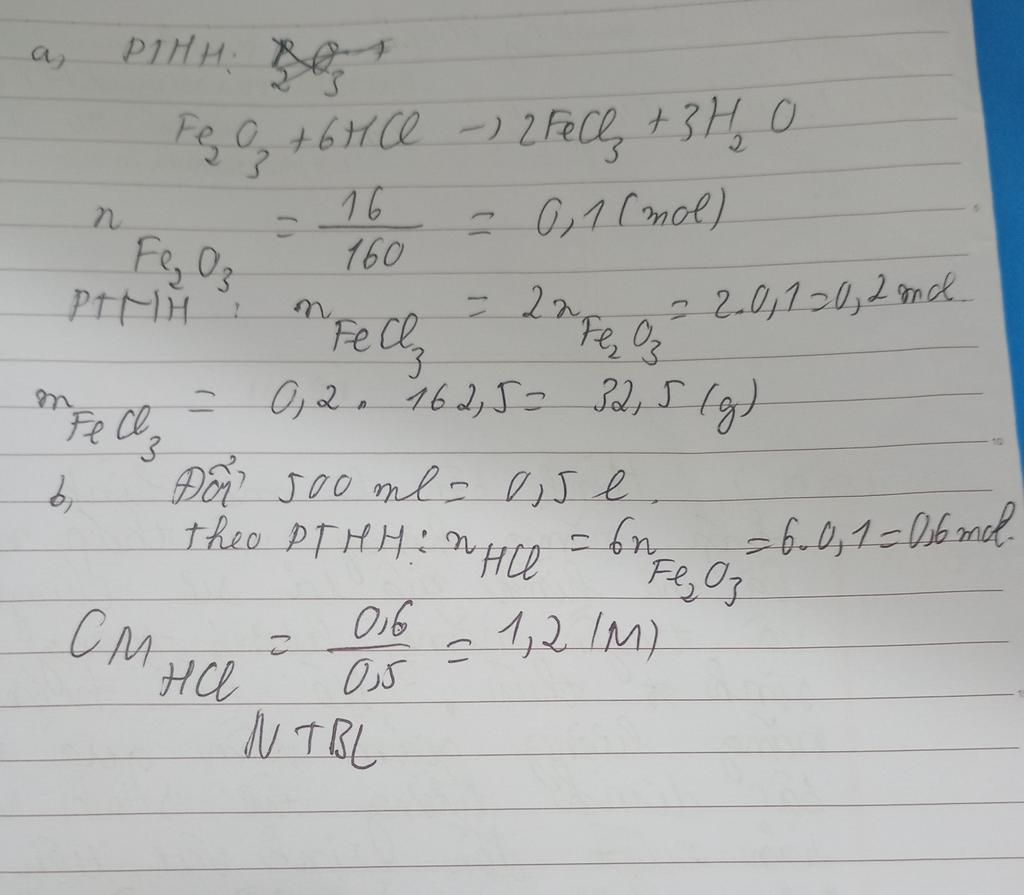 a, PTHH:
Fe2O3 + 6HCl -> 2FeCl3 + 3H2O
nFe2O3 = 16/160 = 0,1 (mol)
PTHH : nFeCl3 = 2nFe2O3 = 2.0,1 = 0,2 mol
mFeCl3 = 0,2 . 162,5 = 32,5 (g)
b, Đổi 500 ml = 0,5 l.
theo PTHH: nHCl = 6nFe2O3 = 6.0,1 = 0,6 mol.
CMHCl = 0,6/0,5 = 1,2 (M)
NTBL